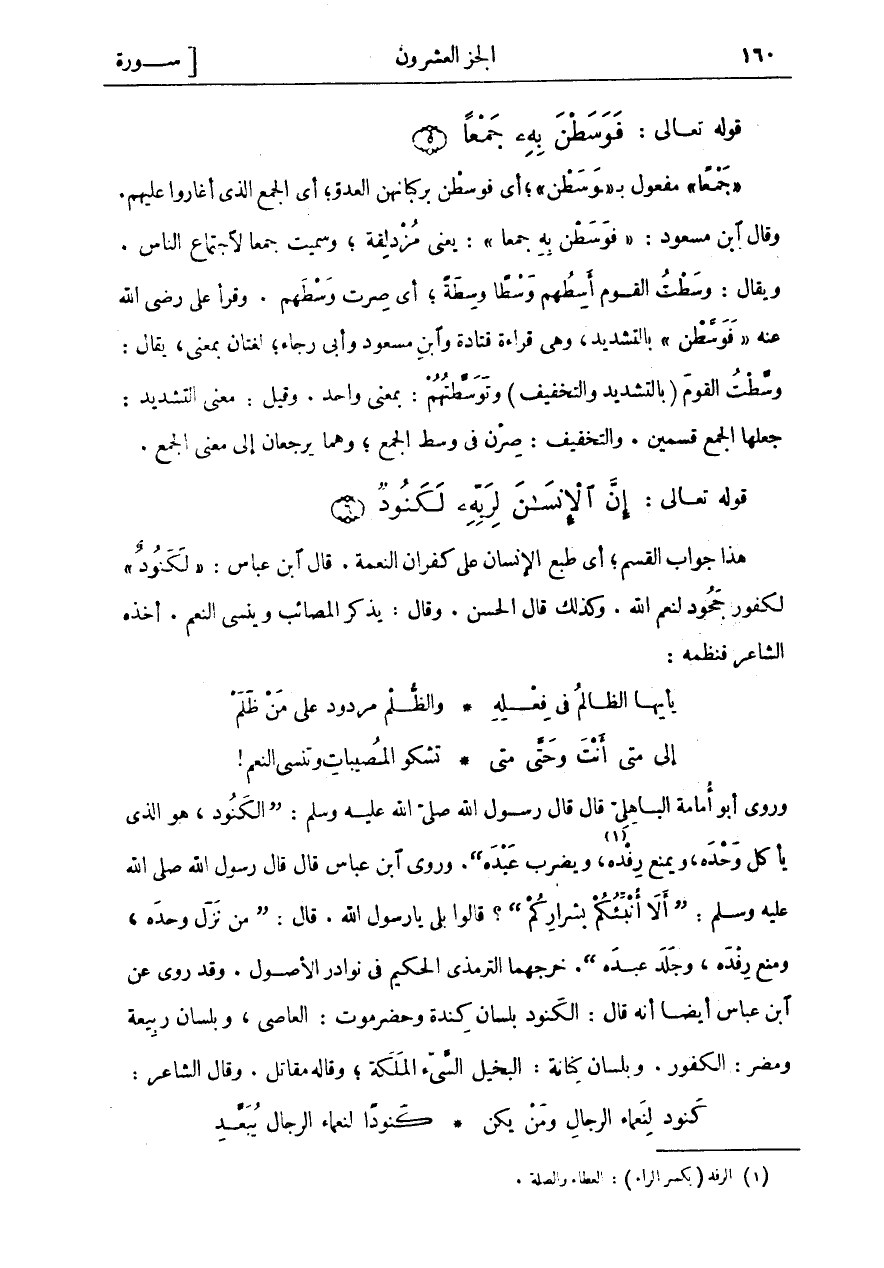 ١٦٠ الجزء العشرون [ ســورة
قوله تعـالى : فَوَسَطْنَ بِهِۦ جَمْعًا ﴿٥﴾
«جَمْعًا» مفعول بـ«ـوَسَطْن»؛ أى فوسطْن بركبانهن العدوّ؛ أى الجمع الذى أغاروا عليهم.
وقال ٱبن مسعود : « فَوَسَطْن بِهِ جمعا » : يعنى مُزْدلِفة ؛ وسميت جمعا لاجتماع الناس .
ويقال : وسَطْتُ القــوم أَسِطُهم وَسْطًا وسِطَةً ؛ أى صِرت وَسْطَهم . وقرأ على رضى الله
عنه « فَوَسَّطْن » بالتشديد، وهى قراءة قتادة وٱبنِ مسعود وأبى رجاء؛ لغتان بمعنى، يقال :
وسَّطْتُ القومَ (بالتشديد والتخفيف) وتَوَسَّطتُهُمْ : بمعنى واحد . وقيل : معنى التشديد :
جعلها الجمع قسمين . والتخفيف : صِرْن فى وسط الجمع ؛ وهما يرجعان إلى معنى الجمع .
قوله تعـالى : إِنَّ ٱلْإِنسَـٰنَ لِرَبِّهِۦ لَكَنُودٌ ﴿٦﴾
هذا جواب القسم؛ أى طبع الإنسان على كفران النعمة . قال ٱبن عباس : « لَكَنُودٌ »
لكفور جَحُود لنعم الله . وكذلك قال الحسن . وقال : يذكر المصائب وينسى النعم . أخذه
الشاعر فنظمه :
يأيهـا الظـالمُ فى فِعْـــلِهِ * والظُّــلْم مردود على مَنْ ظَلَمْ
إلى متى أَنْتَ وحَتَّى متى * تشكو المُصِيباتِ وتنسى النعم !
وروى أبو أُمامة البـاهِلىّ قال قال رسـول الله صلى الله عليـه وسلم : ”الكَنُود ، هو الذى
يأكل وَحْدَه، ويمنع رِفْدَه(١)، ويضرب عَبْدَه“. وروى ٱبن عباس قال قال رسول الله صلى الله
عليه وسـلم : ”أَلَا أُنَبِّئُكُمْ بِشرارِكُمْ“ ؟ قالوا بلى يارسول الله . قال : ”من نَزَل وحدَه ،
ومنع رِفْدَه ، وجَلَد عبـدَه“. خرجهما الترمذى الحكيم فى نوادر الأصـول . وقد روى عن
ٱبن عباس أيضـا أنه قال : الكَنود بلسان كِندة وحضرموت : العاصى ، وبلسان ربِيعة
ومضر : الكفور . وبلسان كِنانة : البخيل السَّيّء المَلَكة ؛ وقاله مقاتل . وقال الشاعر :
كَنود لِنَعماء الرجالِ ومَنْ يكن * كَنودًا لنعماء الرجال يُبَعَّــدِ
(١) الرفد (بكسر الراء) : العطاء والصلة .